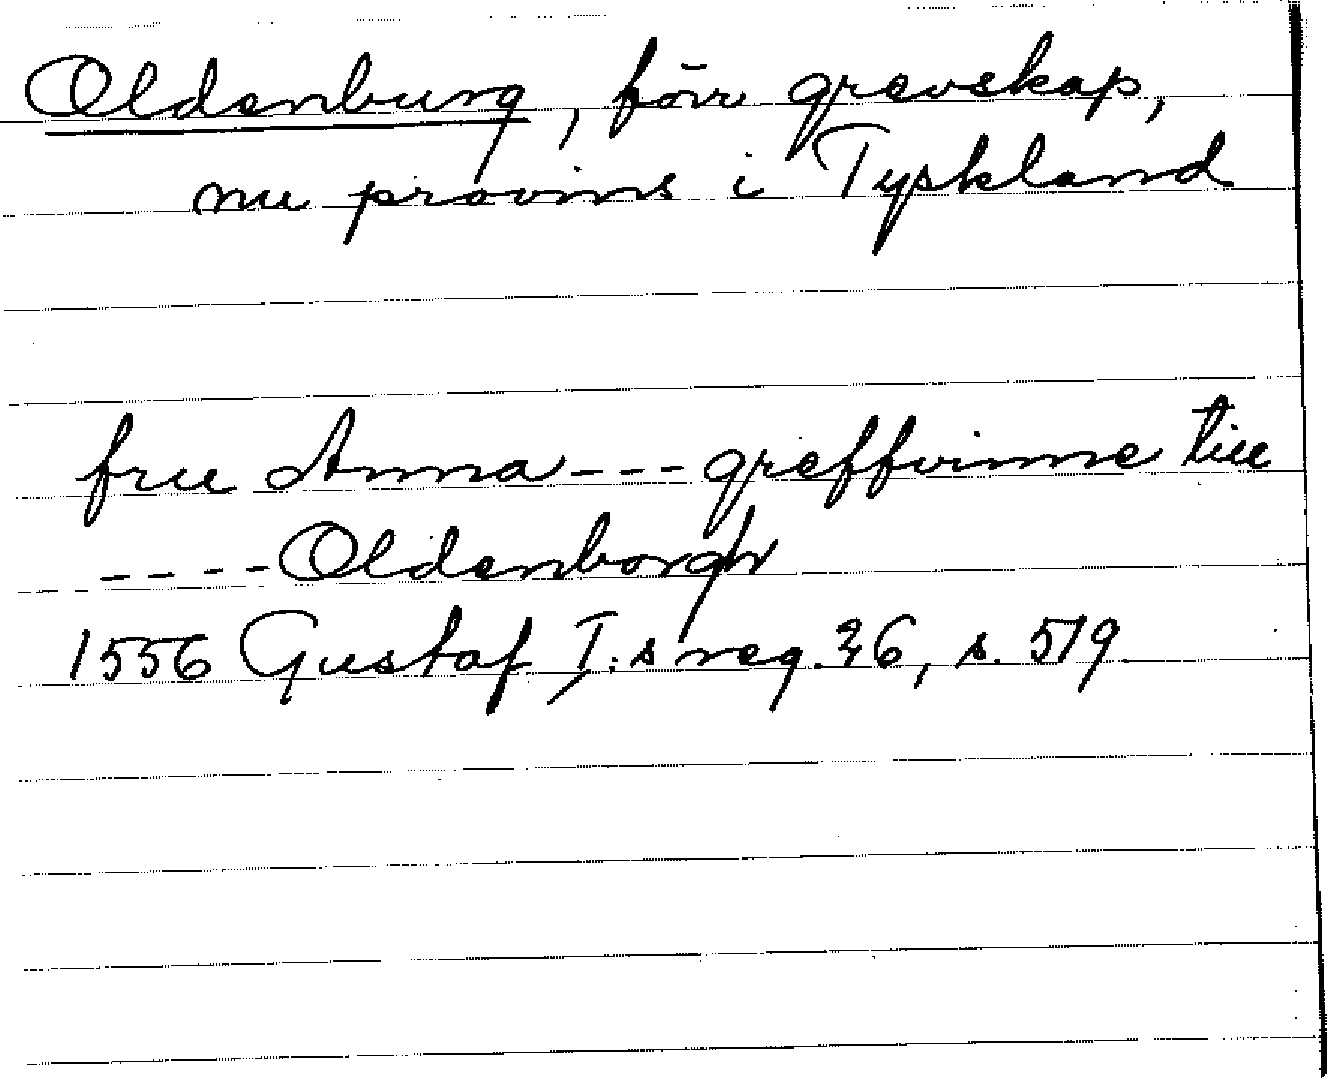 Oldenburg, förr grevskap,
nu provins i Tyskland
fru Anna --- greffvinne till
---- Oldenborgh
1556 Gustaf I:s reg. 26, s. 519